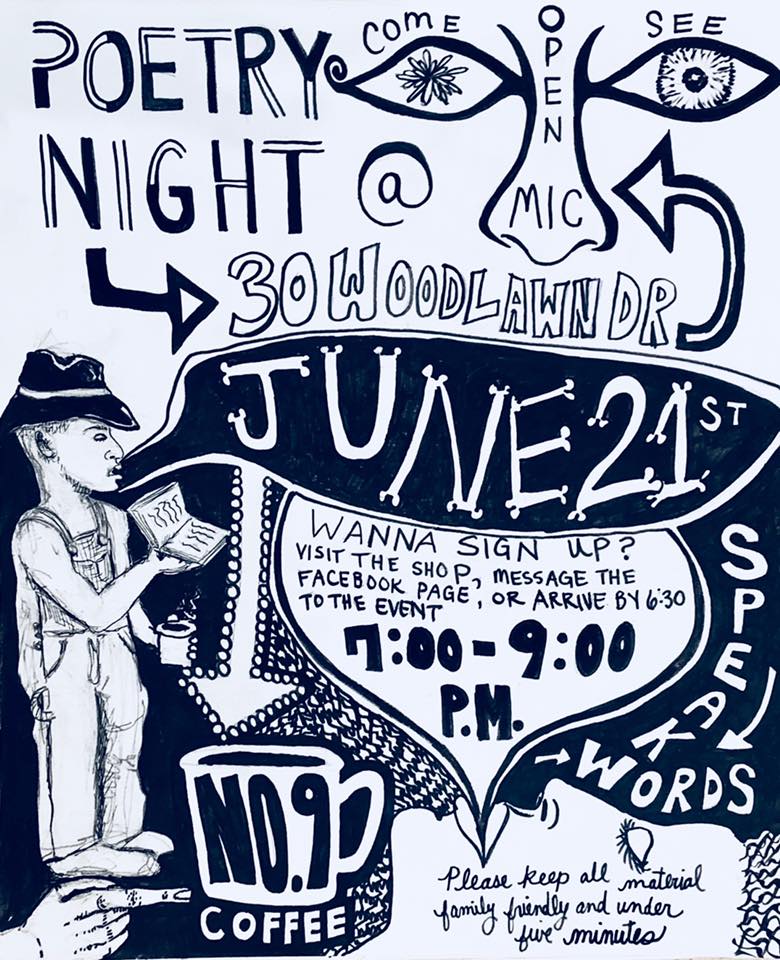 POETRY
NIGHT @
COME
SEE
OPEN
MIC
30 WOODLAWN DR
JUNE 21ST
WANNA SIGN UP?
VISIT THE SHOP, MESSAGE THE
FACEBOOK PAGE, OR ARRIVE BY 6:30
TO THE EVENT
7:00-9:00
P.M.
SPEAK
WORDS
NO.9
COFFEE
Please keep all material
family friendly and under
five minutes